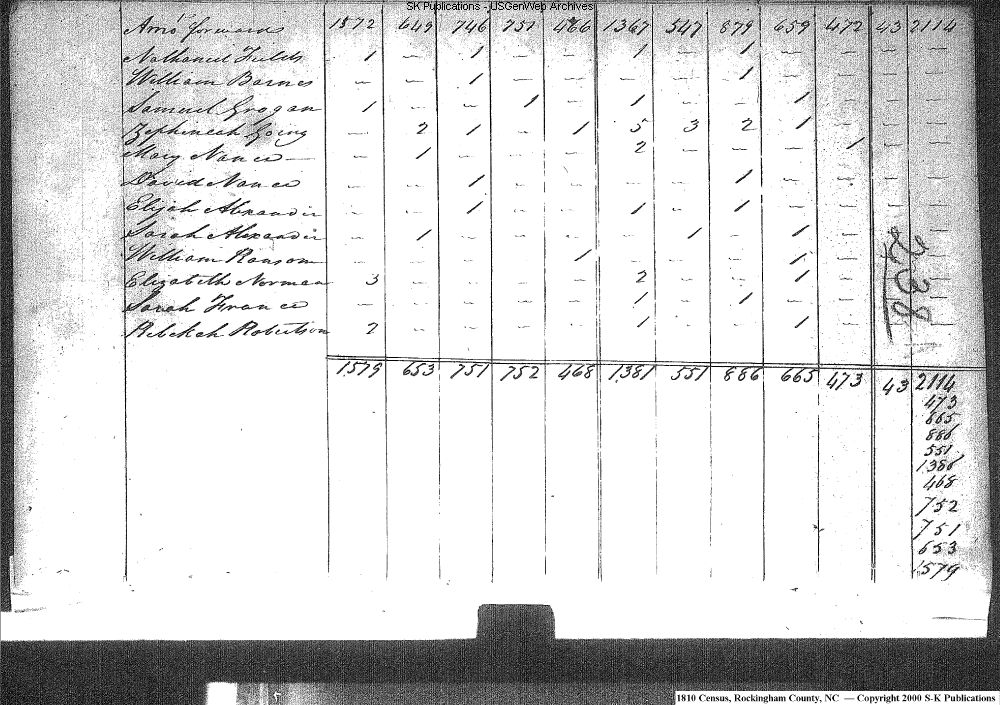 SK Publications - USGenWeb Archives
Amo forward 1572 649 746 751 466 1367 547 879 659 472 43 2114
Nathaniel Fields 1 — 1 — — 1 — 1 — — — —
William Barnes — — 1 — — — — 1 — — — —
Samuel Grogan 1 — — 1 — 1 — — 1 — — —
Zephineah Going — 2 1 — 1 5 3 2 1 — — —
Mary Nance — — 1 — — — 2 — — — 1 — —
David Nance — — 1 — — — — 1 — — — —
Elijah Alexander — — 1 — — 1 — 1 — — — —
Sarah Alexander — 1 — — — — 1 — 1 — — —
William Ransom — — — — 1 — — — 1 — — —
Elizabeth Norman 3 — — — — 2 — — 1 — — —
Sarah France — — — — — 1 — 1 — — — —
Rebekah Robertson 2 — — — — 1 — — 1 — — —
238
1579 653 751 752 468 1381 551 886 665 473 43 2114
473
665
886
551
1386
468
752
751
653
1579
1810 Census, Rockingham County, NC — Copyright 2000 S-K Publications